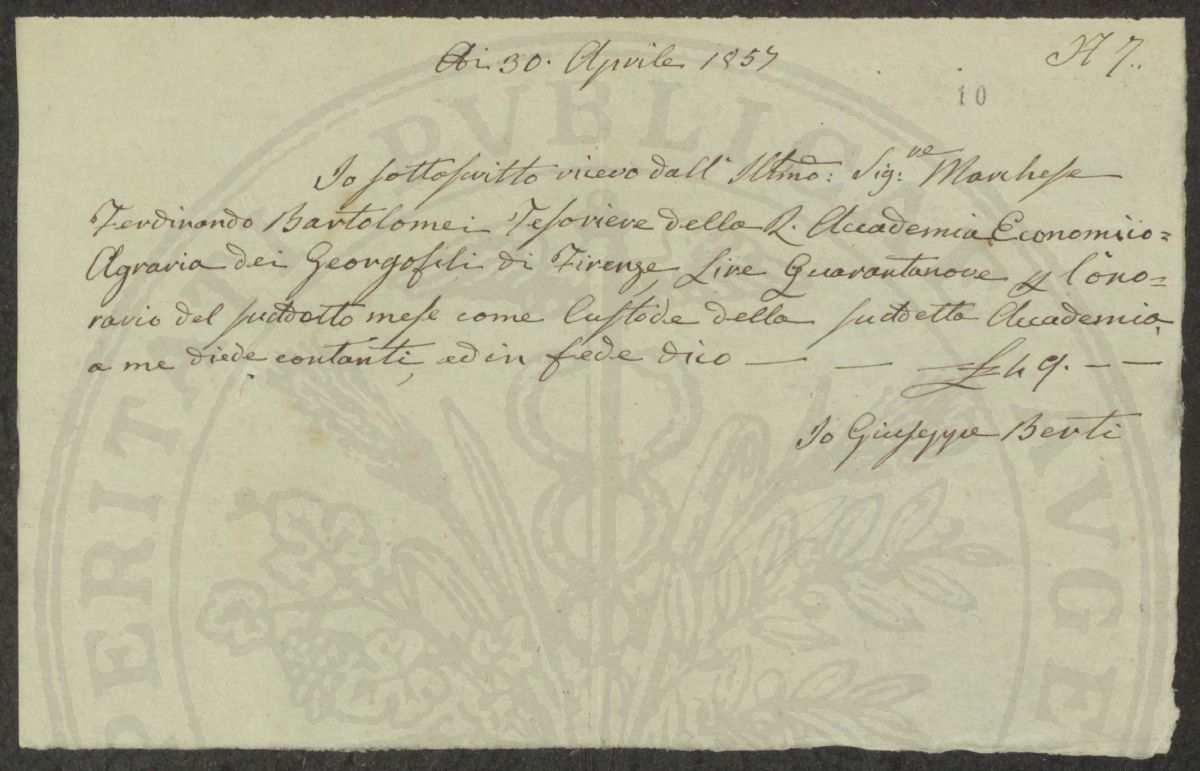 Adi 30. Aprile 1857
N 7.
10
Io sottoscritto ricevo dall' Illmo: Sig:re Marchese
Ferdinando Bartolomei Tesoriere della R. Accademia Economico=
Agraria dei Georgofili di Firenze, Lire Quarantanove p l'ono=
rario del suddotto mese come Custode della suddetta Accademia,
a me diede contanti, ed in fede dico — — £ 49. — —
Io Giuseppe Berti
PROSPERITATI PVBLICAE AVGE